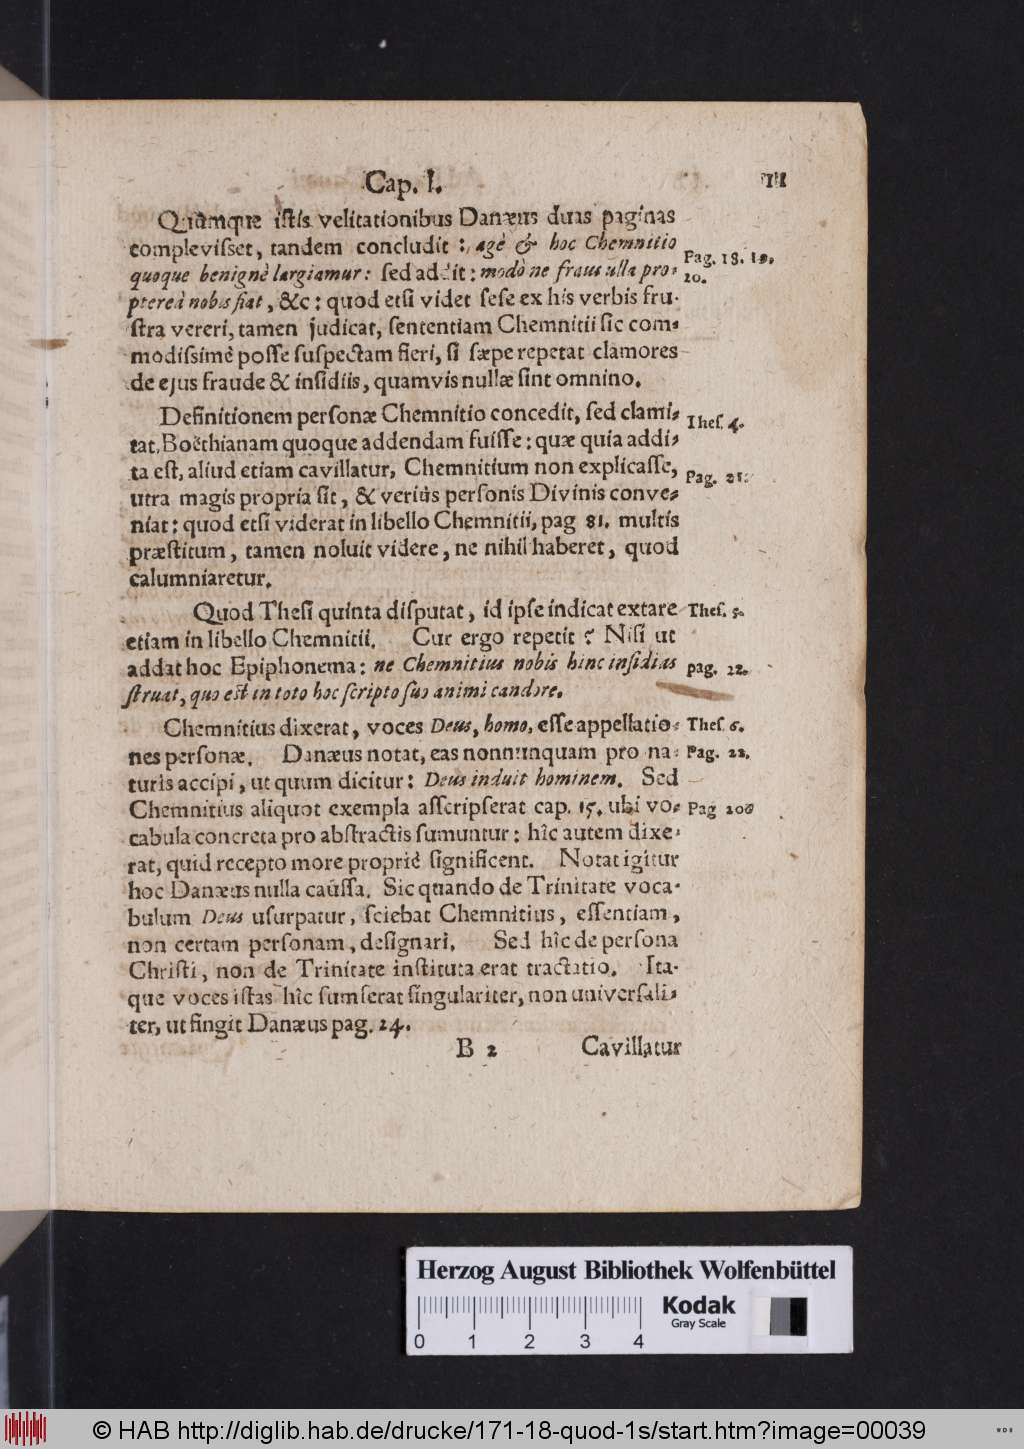 Cap. I. 11
Quùmque istis velitationibus Danæus duas paginas
complevisset, tandem concludit: agè & hoc Chemnitio
Pag. 18. 19.
quoque benignè largiamur: sed addit: modò ne fraus ulla pro-
20.
ptereà nobis fiat, &c: quod etsi videt sese ex his verbis fru-
stra vereri, tamen judicat, sententiam Chemnitii sic com-
modissimè posse suspectam fieri, si sæpe repetat clamores
de ejus fraude & insidiis, quamvis nullæ sint omnino.
Definitionem personæ Chemnitio concedit, sed clami-
Thes. 4.
tat, Boëthianam quoque addendam fuisse: quæ quia addi-
ta est, aliud etiam cavillatur, Chemnitium non explicasse,
Pag. 21.
utra magis propria sit, & veriùs personis Divinis conve-
niat: quod etsi viderat in libello Chemnitii, pag 81. multis
præstitum, tamen noluit videre, ne nihil haberet, quod
calumniaretur.
Quod Thesi quinta disputat, id ipse indicat extare
Thes. 5.
etiam in libello Chemnitii. Cur ergo repetit? Nisi ut
addat hoc Epiphonema: ne Chemnitius nobis hinc insidias
pag. 22.
struat, quo est in toto hoc scripto suo animi candore.
Chemnitius dixerat, voces Deus, homo, esse appellatio-
Thes. 6.
nes personæ. Danæus notat, eas nonnunquam pro na-
Pag. 22.
turis accipi, ut quum dicitur: Deus induit hominem. Sed
Chemnitius aliquot exempla asscripserat cap. 15. ubi vo-
Pag 200
cabula concreta pro abstractis sumuntur: hîc autem dixe-
rat, quid recepto more propriè significent. Notat igitur
hoc Danæus nulla caussa. Sic quando de Trinitate voca-
bulum Deus usurpatur, sciebat Chemnitius, essentiam,
non certam personam, designari. Sed hîc de persona
Christi, non de Trinitate instituta erat tractatio. Ita-
que voces istas hîc sumserat singulariter, non universali-
ter, ut fingit Danæus pag. 24.
B 2 Cavillatur
Herzog August Bibliothek Wolfenbüttel
Kodak
Gray Scale
0 1 2 3 4
© HAB http://diglib.hab.de/drucke/171-18-quod-1s/start.htm?image=00039